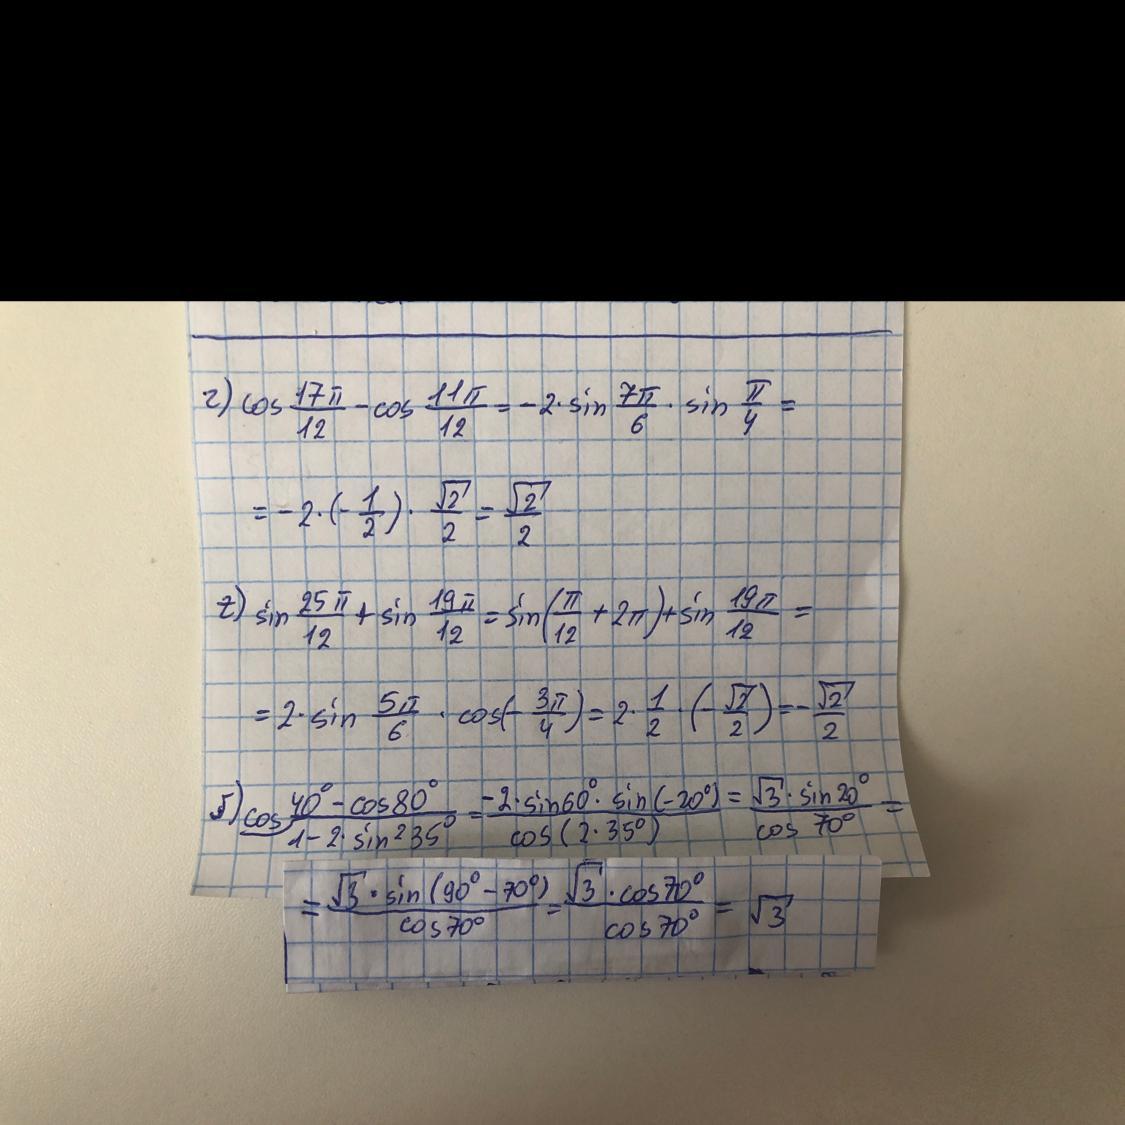 г) cos 17π/12 - cos 11π/12 = -2·sin 7π/6 · sin π/4 =
= -2·(-1/2)· √2/2 = √2/2
г) sin 25π/12 + sin 19π/12 = sin(π/12 + 2π) + sin 19π/12 =
= 2·sin 5π/6 · cos(-3π/4) = 2·1/2·(-√2/2) = -√2/2
б) (cos 40° - cos 80°)/(1 - 2·sin² 35°) = (-2·sin 60°·sin(-20°))/(cos(2·35°)) = (√3·sin 20°)/(cos 70°) =
= (√3·sin(90° - 70°))/(cos 70°) = (√3·cos 70°)/(cos 70°) = √3